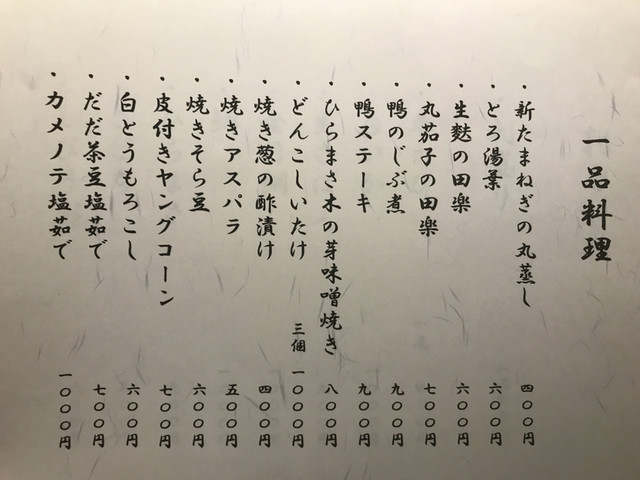 一品料理
・新たまねぎの丸蒸し 四〇〇円
・とろ湯葉 六〇〇円
・生麩の田楽 六〇〇円
・丸茄子の田楽 七〇〇円
・鴨のじぶ煮 九〇〇円
・鴨ステーキ 九〇〇円
・ひらまさ木の芽味噌焼き 八〇〇円
・どんこしいたけ 三個 一〇〇〇円
・焼き葱の酢漬け 四〇〇円
・焼きアスパラ 五〇〇円
・焼きそら豆 六〇〇円
・皮付きヤングコーン 七〇〇円
・白とうもろこし 六〇〇円
・だだ茶豆塩茹で 七〇〇円
・カメノテ塩茹で 一〇〇〇円